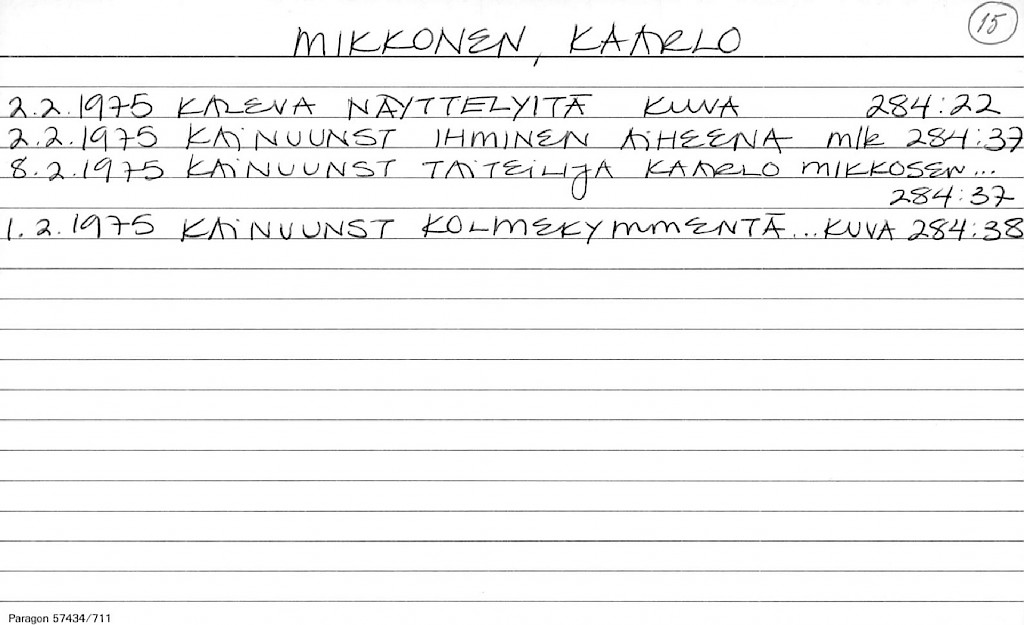 15
MIKKONEN, KAARLO
2.2.1975 KALEVA NÄYTTELYITÄ KUVA 284:22
2.2.1975 KAINUUNST IHMINEN AIHEENA mlk 284:37
8.2.1975 KAINUUNST TAITEILIJA KAARLO MIKKOSEN...
284:37
1.2.1975 KAINUUNST KOLMEKYMMENTÄ...KUVA 284:38
Paragon 57434/711